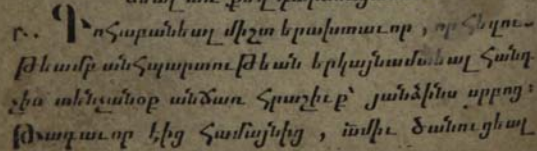 ր․․ Գոհաբանեալ միշտ երախտաւոր , որ հեղու֊
թեամբ անհպարտութեան երկայնամտեալ հանդ֊
չիս տենչանօք անճառ հրաշիւք՝ յանձինս սրբոց։
Թագաւոր էից համայնից , ծանուցեալ